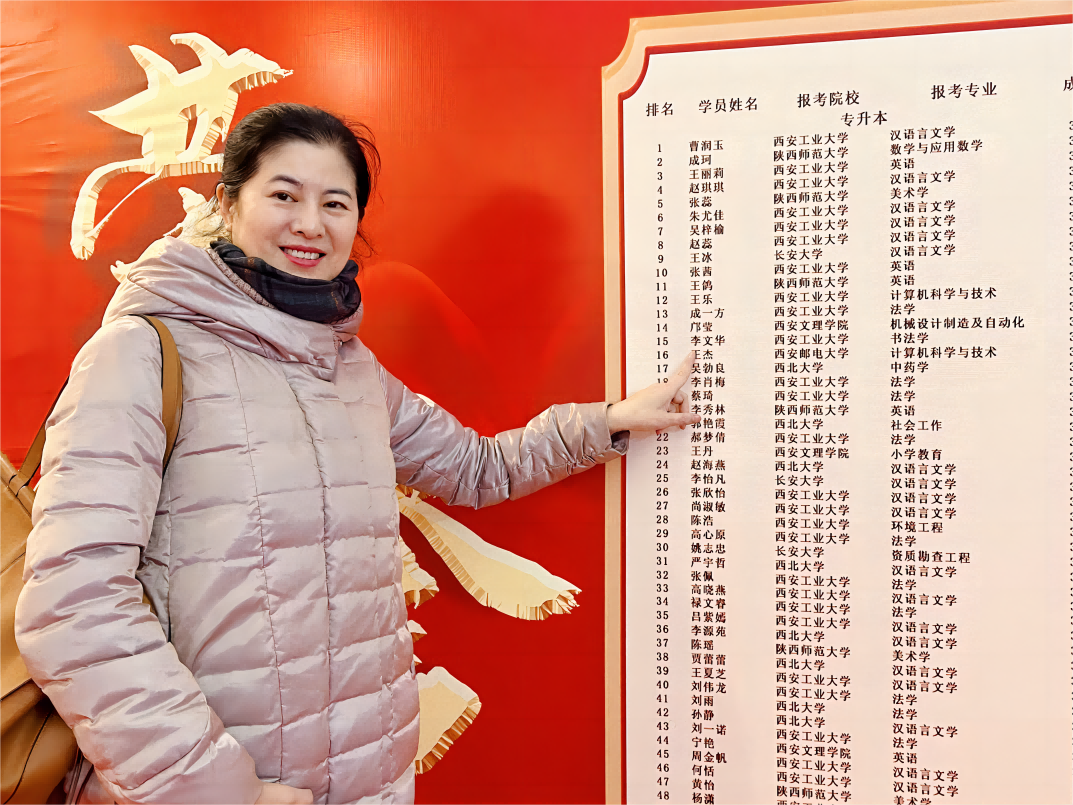 排名 学员姓名 报考院校 报考专业 成
专升本
1 曹润玉 西安工业大学 汉语言文学
2 成珂 陕西师范大学 数学与应用数学
3 王丽莉 西安工业大学 英语
4 赵琪琪 西安工业大学 汉语言文学
5 张蕊 陕西师范大学 美术学
6 朱尤佳 西安工业大学 汉语言文学
7 吴梓榆 西安工业大学 汉语言文学
8 赵蕊 西安工业大学 汉语言文学
9 王冰 长安大学 汉语言文学
10 张茜 西安工业大学 英语
11 王鸽 陕西师范大学 英语
12 王乐 西安工业大学 计算机科学与技术
13 成一方 西安工业大学 法学
14 邝莹 西安文理学院 机械设计制造及自动化
15 李文华 西安工业大学 书法学
16 王杰 西安邮电大学 计算机科学与技术
17 吴勃良 西北大学 中药学
18 李肖梅 西安工业大学 法学
蔡琦 西安工业大学 法学
李秀林 陕西师范大学 英语
郭艳霞 西北大学 社会工作
22 郝梦倩 西安工业大学 法学
23 王丹 西安文理学院 小学教育
24 赵海燕 西北大学 汉语言文学
25 李怡凡 长安大学 汉语言文学
26 张欣怡 西安工业大学 汉语言文学
27 尚淑敏 西安工业大学 汉语言文学
28 陈浩 西安工业大学 环境工程
29 高心原 西安工业大学 法学
30 姚志忠 长安大学 资质勘查工程
31 严宇哲 西北大学 汉语言文学
32 张佩 西安工业大学 法学
33 高晓燕 西安工业大学 汉语言文学
34 禄文睿 西安工业大学 法学
35 吕紫嫣 西安工业大学 汉语言文学
36 李源苑 西北大学 汉语言文学
37 陈瑶 陕西师范大学 美术学
38 贾蕾蕾 西北大学 汉语言文学
39 王夏芝 西安工业大学 汉语言文学
40 刘伟龙 西安工业大学 法学
41 刘雨 西北大学 法学
42 孙静 西北大学 汉语言文学
43 刘一诺 西安工业大学 法学
44 宁艳 西安文理学院 英语
45 周金帆 西安工业大学 汉语言文学
46 何恬 西安工业大学 汉语言文学
47 黄怡 陕西师范大学 美术学
48 杨潇 西安工业大学